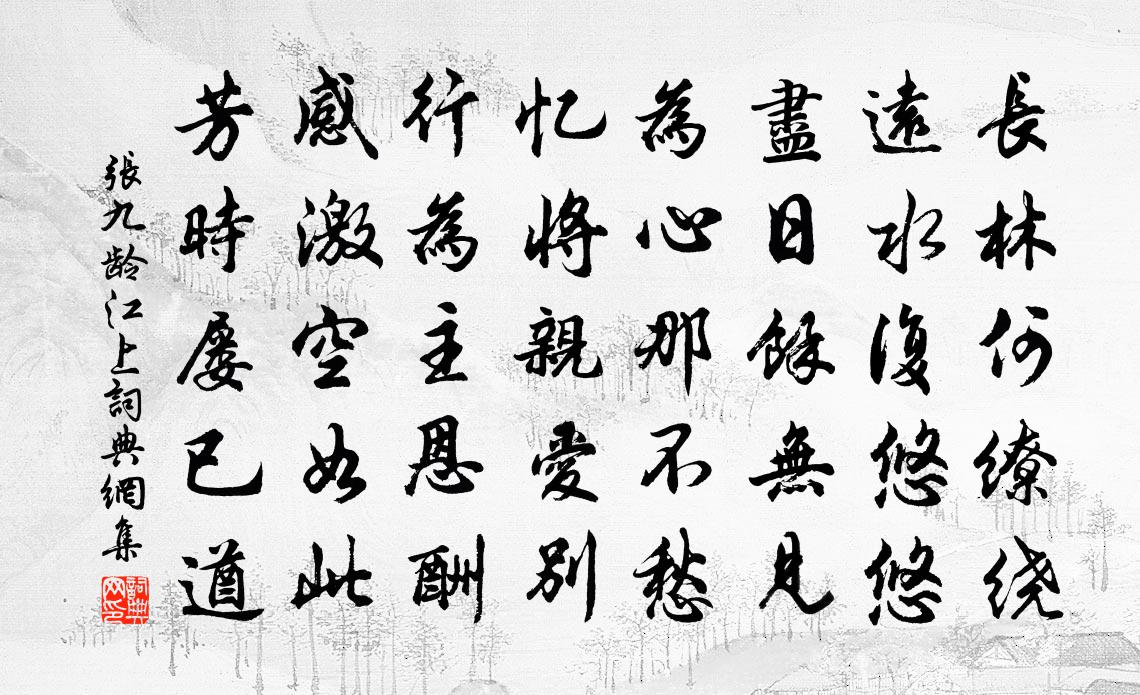 長林何缭绕
遠水復悠悠
盡日餘無見
為心那不愁
忆將親愛別
行為主恩酬
感激空如此
芳時屡已遒
張九龄江上詞典網集
詞典网印